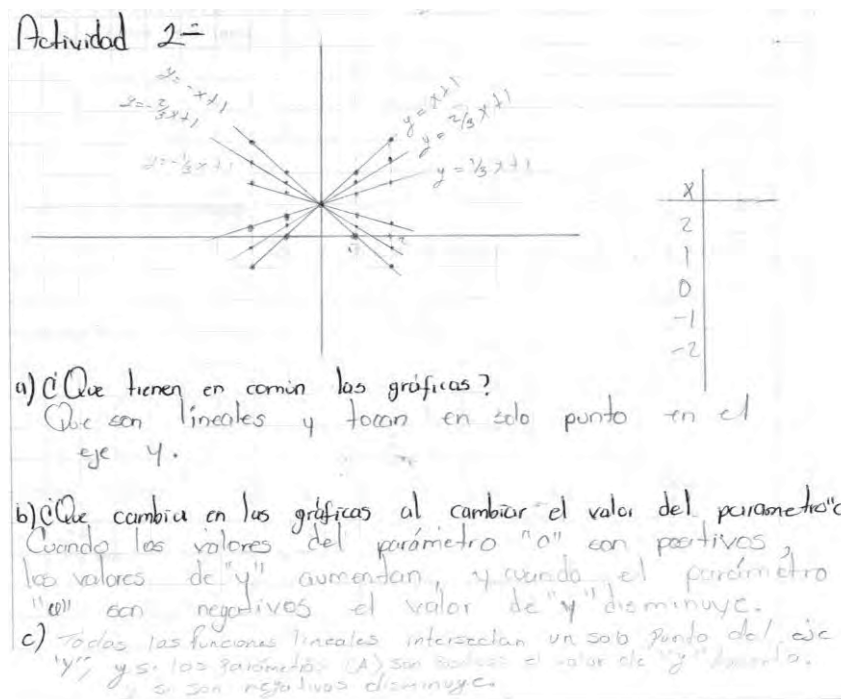 Actividad 2=
y=-x+1
y=-2/3x+1
y=-1/3x+1
y=x+1
y=2/3x+1
y=1/3x+1
x
2
1
0
-1
-2
a) ¿Que tienen en comun las gráficas?
Que son lineales y tocan en solo punto en el
eje y.
b) ¿Que cambia en las gráficas al cambiar el valor del parametro "a
Cuando los valores del parámetro "a" son positivos,
los valores de "y" aumentan, y cuando el parámetro
"a" son negativos el valor de "y" disminuye.
c) Todas las funciones lineales intersectan un solo punto del eje
"y", y si los parámetros (A) son el valor de "y"
y si son negativos disminuye.